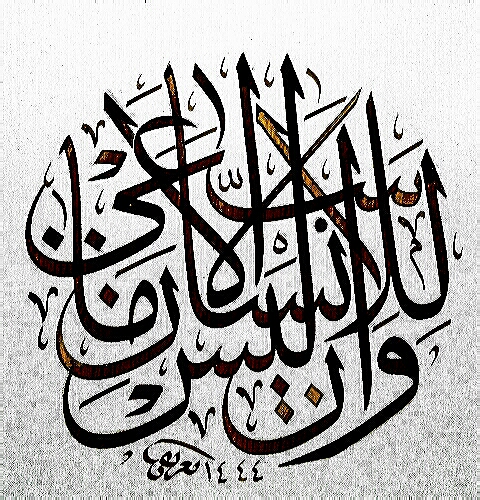 وان ليس للانسان الا ما سعى
١٤٤٤